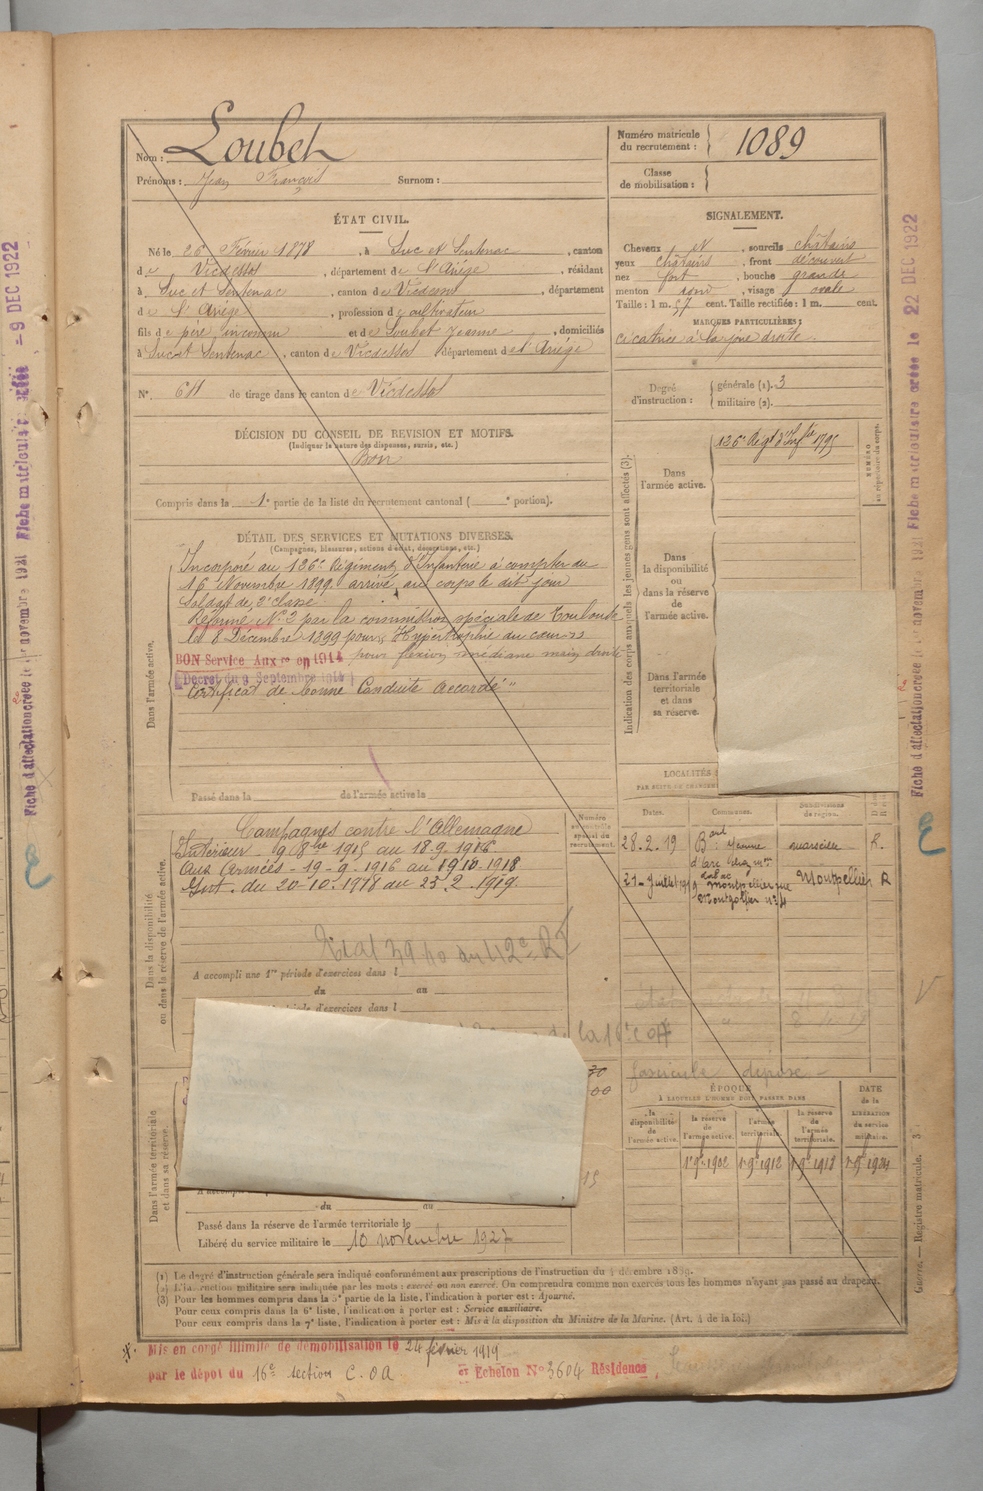 Nom : Loubet
Prénoms : Jean François Surnom :
Numéro matricule du recrutement : 1089
Classe de mobilisation :
ÉTAT CIVIL.
Né le 26 Février 1878, à Suc et Sentenac, canton
de Vicdessos, département de l'Ariége, résidant
à Suc et Sentenac, canton de Vicdessos, département
de l'Ariége, profession de cultivateur
fils de père inconnu et de Loubet Jeanne, domiciliés
à Suc et Sentenac, canton de Vicdessos département de l'Ariége
N° 61 de tirage dans le canton de Vicdessos
SIGNALEMENT.
Cheveux et, sourcils châtains
yeux châtains, front découvert
nez fort, bouche grande
menton rond, visage ovale
Taille : 1 m. 57 cent. Taille rectifiée : 1 m. cent.
MARQUES PARTICULIÈRES :
cicatrice à la joue droite.
Degré d'instruction : générale (1). 3
militaire (2).
DÉCISION DU CONSEIL DE REVISION ET MOTIFS.
(Indiquer la nature des dispenses, sursis, etc.)
Bon
Compris dans la 1e partie de la liste du recrutement cantonal ( e portion).
DÉTAIL DES SERVICES ET MUTATIONS DIVERSES.
(Campagnes, blessures, actions d'éclat, décorations, etc.)
Dans l'armée active.
Incorporé au 126e Régiment d'Infanterie à compter du
16 Novembre 1899 arrivé au corps le dit jour
Soldat de 2e classe
Réformé N°2 par la commission spéciale de Toulouse
le 8 Décembre 1899 pour "Hypertrophie du cœur"
BON Service Auxre en 1914 pour flexion médiane main droite
(Décret du 9 Septembre 1914)
Certificat de bonne Conduite Accordé"
Passé dans la de l'armée active le
Indication des corps auxquels les jeunes gens sont affectés (3).
Dans l'armée active.
126e Regt d'Infie 1795
NUMÉRO au répertoire du corps.
Dans la disponibilité ou dans la réserve de l'armée active.
Dans l'armée territoriale et dans sa réserve.
LOCALITÉS
PAR SUITE DE CHANGEM
Dates. Communes. Subdivisions de région.
28.2.19 Bard Jeanne d'Arc chez Mme marseille R.
21 Juillet 19 Montpellier rue Montgolfier n°4 Montpellier R
Dans la disponibilité ou dans la réserve de l'armée active.
Campagnes contre l'Allemagne
Intérieur 9 8bre 1915 au 18.9.1916
Aux Armées - 19-9-1916 au 19.10.1918
Int. du 20-10.1918 au 23.2.1919.
Numéro au contrôle spécial du recrutement.
A accompli une 1re période d'exercices dans l
du au
période d'exercices dans l
la 16e COA
fascicule déposé -
Dans l'armée territoriale et dans sa réserve.
du au
Passé dans la réserve de l'armée territoriale le
Libéré du service militaire le 10 novembre 1927
ÉPOQUE
À LAQUELLE L'HOMME DOIT PASSER DANS
la disponibilité de l'armée active.
la réserve de l'armée active.
l'armée territoriale.
la réserve de l'armée territoriale.
DATE de la LIBÉRATION du service militaire.
1 9e 1902 1 9e 1912 1 9e 1918 1 9e 1924
(1) Le degré d'instruction générale sera indiqué conformément aux prescriptions de l'instruction du 4 décembre 1889.
(2) L'instruction militaire sera indiquée par les mots : exercé ou non exercé. On comprendra comme non exercés tous les hommes n'ayant pas passé au drapeau.
(3) Pour les hommes compris dans la 5e partie de la liste, l'indication à porter est : Ajourné.
Pour ceux compris dans la 6e liste, l'indication à porter est : Service auxiliaire.
Pour ceux compris dans la 7e liste, l'indication à porter est : Mis à la disposition du Ministre de la Marine. (Art. 4 de la loi.)
Mis en congé illimité de démobilisation le 24 février 1919
par le dépôt du 16e section C.O.A et Echelon N° 3604 Résidence
Guerre. — Registre matricule. 3
Fiche d'affectation créée le 1er novembre 1921 Fiche matriculaire créée - 9 DEC 1922
Fiche d'affectation créée le 1er novembre 1921 Fiche matriculaire créée le 22 DEC 1922